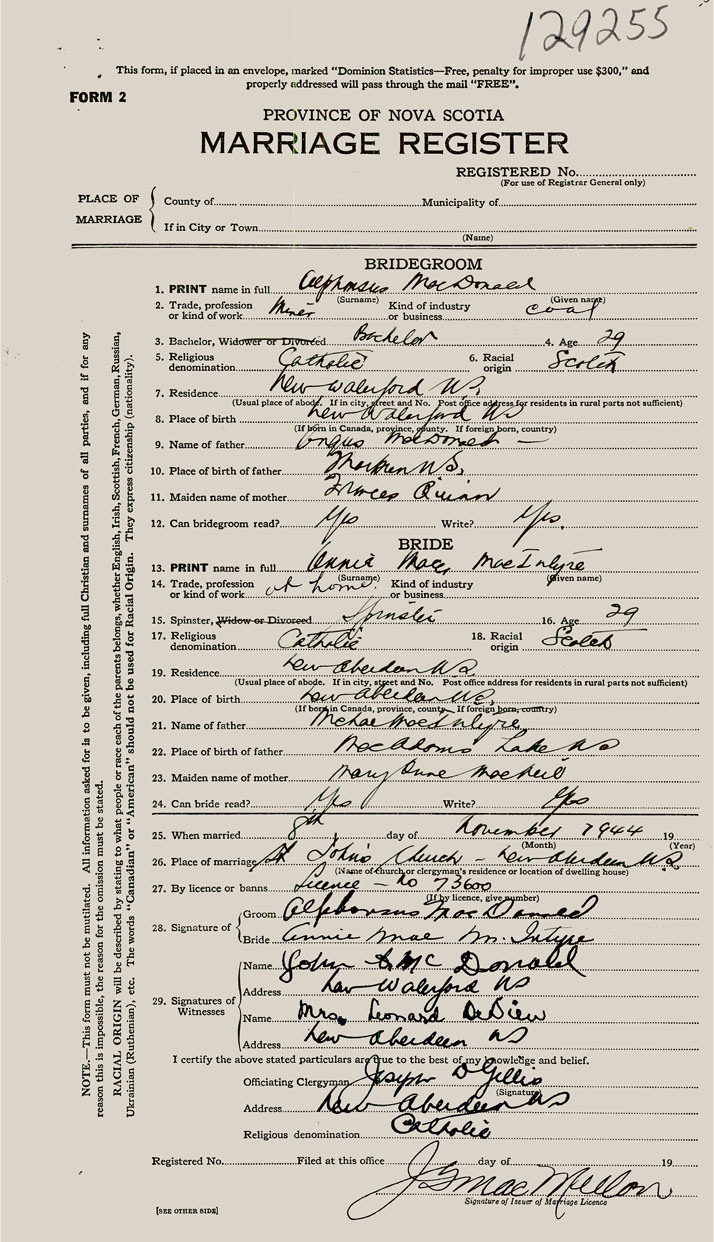 129255
This form, if placed in an envelope, marked "Dominion Statistics—Free, penalty for improper use $300," and
properly addressed will pass through the mail "FREE".
FORM 2
PROVINCE OF NOVA SCOTIA
MARRIAGE REGISTER
REGISTERED No.
(For use of Registrar General only)
PLACE OF MARRIAGE
County of Municipality of
If in City or Town
(Name)
BRIDEGROOM
1. PRINT name in full Alphonsus MacDonald
(Surname) (Given name)
2. Trade, profession or kind of work Miner Kind of industry or business coal
3. Bachelor, Widower or Divorced Bachelor 4. Age 29
5. Religious denomination Catholic 6. Racial origin Scotch
7. Residence New Waterford NS
(Usual place of abode. If in city, street and No. Post office address for residents in rural parts not sufficient)
8. Place of birth New Waterford NS
(If born in Canada, province, county. If foreign born, country)
9. Name of father Angus MacDonald
10. Place of birth of father NS.
11. Maiden name of mother Frances Quinn
12. Can bridegroom read? Yes Write? Yes.
BRIDE
13. PRINT name in full Annie Mae MacIntyre
(Surname) (Given name)
14. Trade, profession or kind of work at home. Kind of industry or business
15. Spinster, Widow or Divorced Spinster 16. Age 29
17. Religious denomination Catholic 18. Racial origin Scotch
19. Residence New Aberdeen NS
(Usual place of abode. If in city, street and No. Post office address for residents in rural parts not sufficient)
20. Place of birth New Aberdeen NS,
(If born in Canada, province, county. If foreign born, country)
21. Name of father Michael MacIntyre
22. Place of birth of father MacAdams Lake NS
23. Maiden name of mother Mary Anne MacNeil
24. Can bride read? Yes Write? Yes
25. When married 8th day of November 1944 19
(Month) (Year)
26. Place of marriage St John's Church - New Aberdeen NS
(Name of church or clergyman's residence or location of dwelling house)
27. By licence or banns Licence - No 73600
(If by licence, give number)
28. Signature of
Groom Alphonsus MacDonald
Bride Annie Mae McIntyre
29. Signatures of Witnesses
Name John McDonald
Address New Waterford NS
Name Mrs. Leonard DeDieu
Address New Aberdeen NS
I certify the above stated particulars are true to the best of my knowledge and belief.
Officiating Clergyman Joseph D Gillis
(Signature)
Address New Aberdeen NS
Religious denomination Catholic
Registered No. Filed at this office day of 19
Signature of Issuer of Marriage Licence
[SEE OTHER SIDE]
NOTE.—This form must not be mutilated. All information asked for is to be given, including full Christian and surnames of all parties, and if for any
reason this is impossible, the reason for the omission must be stated.
RACIAL ORIGIN will be described by stating to what people or race each of the parents belongs, whether English, Irish, Scottish, French, German, Russian,
Ukrainian (Ruthenian), etc. The words "Canadian" or "American" should not be used for Racial Origin. They express citizenship (nationality).